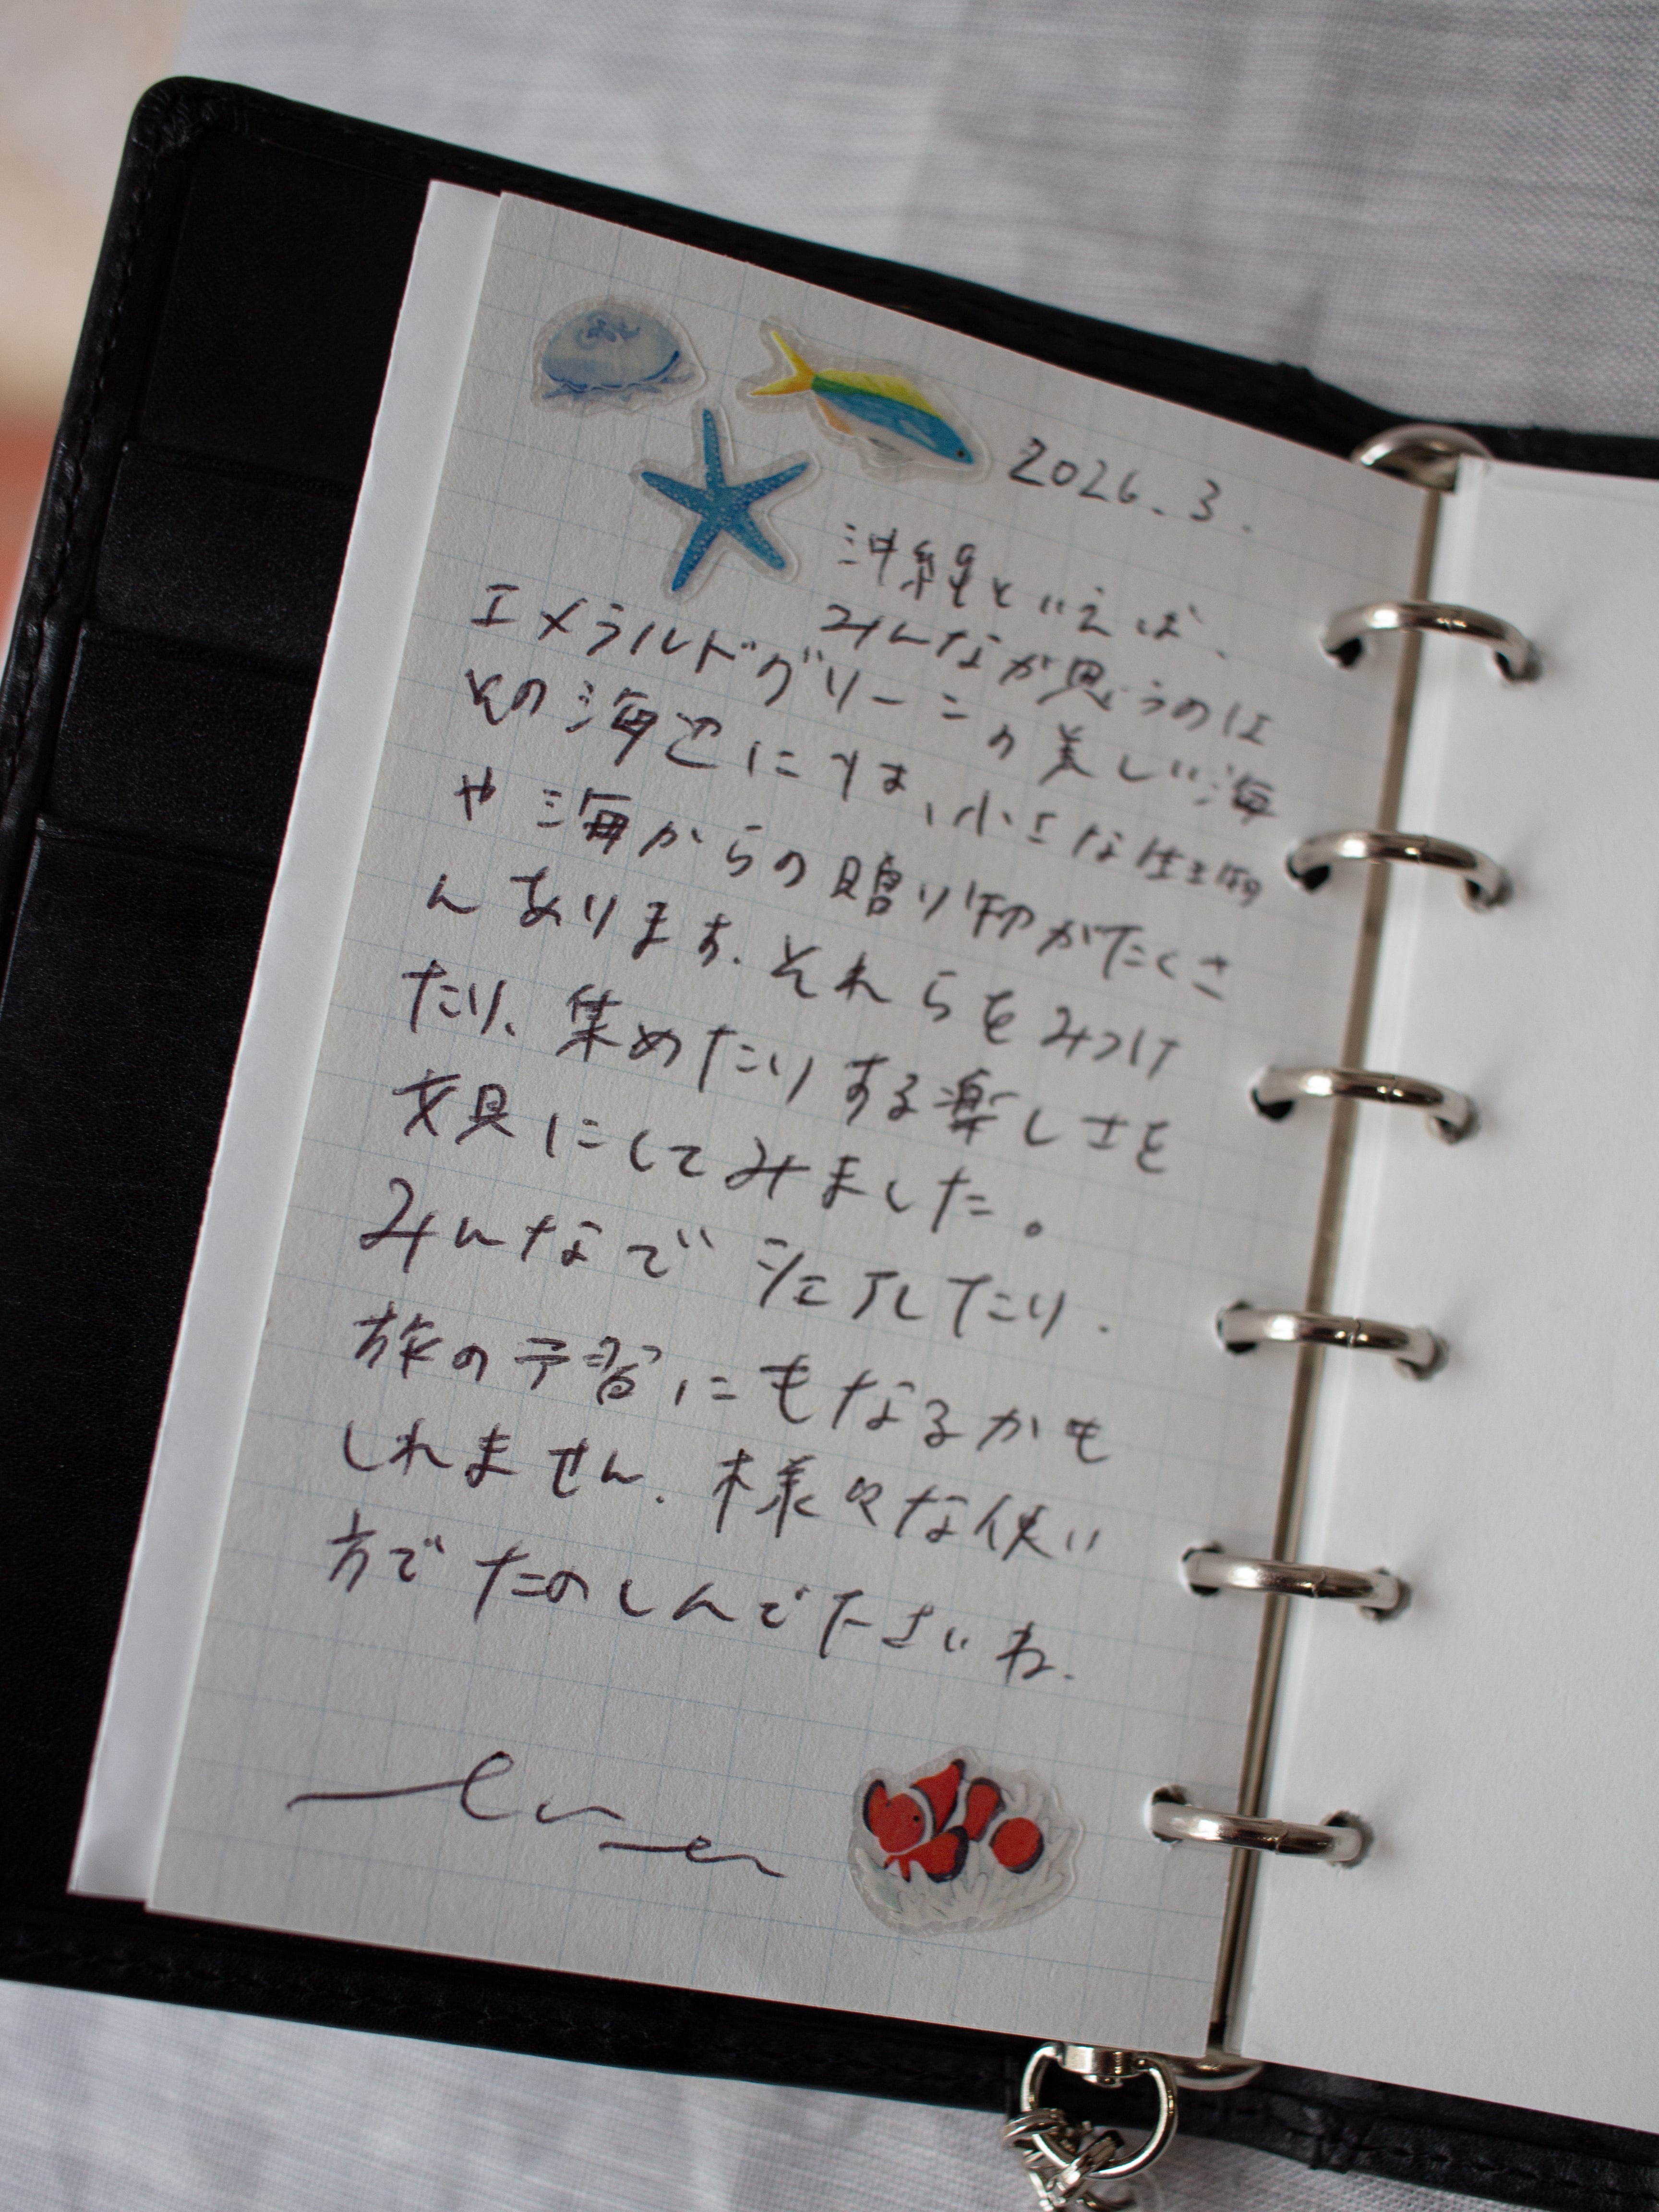 2026.3.
沖縄といえば、
みんなが思うのは
エメラルドグリーンの美しい海
その海辺には、小さな生き物
や海からの贈り物がたくさ
んあります。それらをみつけ
たり、集めたりする楽しさを
文具にしてみました。
みんなでシェアしたり、
旅の予習にもなるかも
しれません。様々な使い
方でたのしんでださいね。